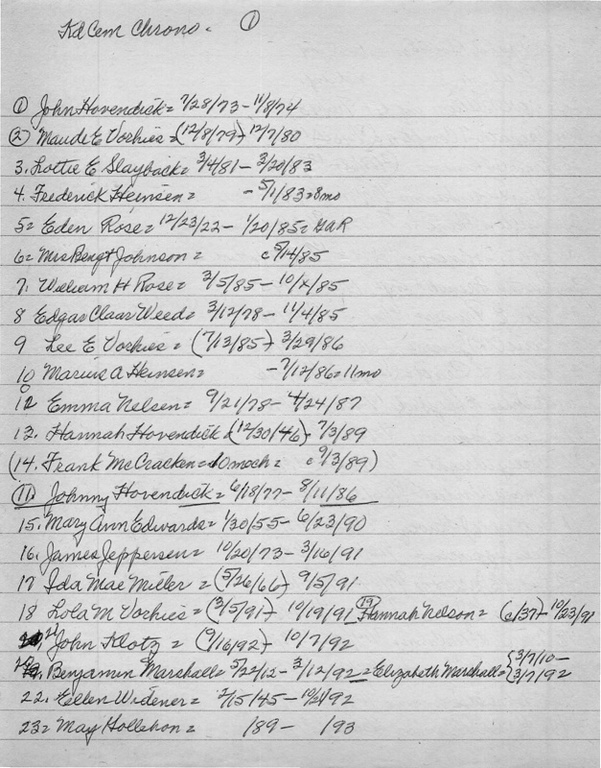 Kd Cem Chrono. ①
① John Hovendick = 7/28/73 - 11/8/74
② Maude E Vorhies = (12/8/79) - 12/7/80
3. Lottie E Slayback = 3/4/81 - 3/20/83
4. Frederick Heinsen = - 5/1/83 = 8mo
5 = Eden Rose = 12/23/22 - 1/20/85 = GAR
6 = Mrs Bengt Johnson = c 5/14/85
7. William H Rose = 3/5/85 - 10/x/85
8 Edgar Claar Weed = 3/12/78 - 11/4/85
9 Lee E Vorhies = (7/13/85) - 3/29/86
10 Marius A Heinsen = - 7/12/86 = 11mo
12 Emma Nelsen = 9/21/78 - 4/24/87
13. Hannah Hovendick = (12/30/46) - 7/3/89
(14. Frank McCracken = c 9/13/89)
(11) Johnny Hovendick = 6/18/77 - 8/11/86
15. Mary Ann Edwards = 1/30/55 - 6/23/90
16. James Jeppersen = 10/20/73 - 3/16/91
17 Ida Mae Miller = (5/26/66) - 9/5/91
18 Lola M Vorhies = (3/5/91) - 10/19/91 ⑲ Hannah Nelson = (c/37) - 10/23/91
John Klotz = (9/16/92) - 10/7/92
Benjamin Marshall = 5/22/12 - 3/12/92 = Elizabeth Marshall = { 3/7/10 - 3/7/92
22. Ellen Widener = 2/15/45 - 92
23 = May Hollehon = /89 - /93